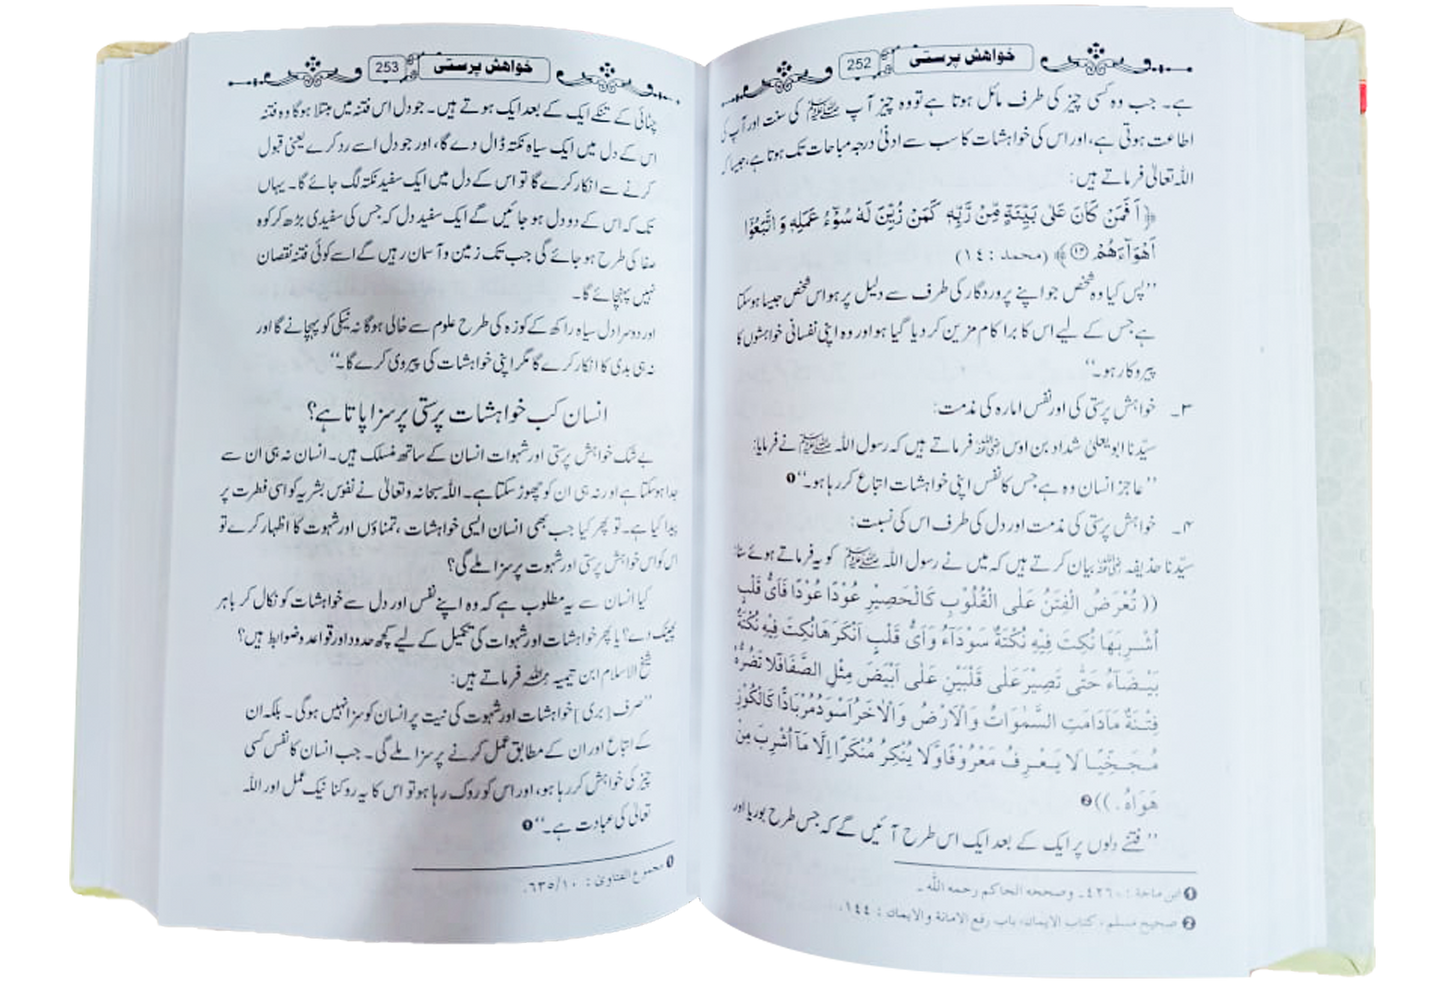 خواہش پرستی 252
ہے۔ جب وہ کسی چیز کی طرف مائل ہوتا ہے تو وہ چیز آپ ﷺ کی سنت اور آپ کی
اطاعت ہوتی ہے، اور اس کی خواہشات کا سب سے ادنیٰ درجہ مباحات تک ہوتا ہے، جیسا کہ
اللہ تعالیٰ فرماتے ہیں:
﴿اَفَمَنْ كَانَ عَلٰى بَيِّنَةٍ مِّنْ رَّبِّهٖ كَمَنْ زُيِّنَ لَهٗ سُوْٓءُ عَمَلِهٖ وَاتَّبَعُوْٓا
اَهْوَآءَهُمْ ۝۱۴﴾ (محمد : ١٤)
’’پس کیا وہ شخص جو اپنے پروردگار کی طرف سے دلیل پر ہو اس شخص جیسا ہو سکتا
ہے جس کے لیے اس کا برا کام مزین کر دیا گیا ہو اور وہ اپنی نفسانی خواہشوں کا
پیروکار ہو۔‘‘
۳۔ خواہش پرستی کی اور نفس امارہ کی مذمت:
سیّدنا ابو یعلیٰ شداد بن اوس رضی اللہ عنہ فرماتے ہیں کہ رسول اللہ ﷺ نے فرمایا:
’’عاجز انسان وہ ہے جس کا نفس اپنی خواہشات اتباع کر رہا ہو۔‘‘ ❶
۴۔ خواہش پرستی کی مذمت اور دل کی طرف اس کی نسبت:
سیّدنا حذیفہ رضی اللہ عنہ بیان کرتے ہیں کہ میں نے رسول اللہ ﷺ کو یہ فرماتے ہوئے سنا:
(( تُعْرَضُ الْفِتَنُ عَلَى الْقُلُوْبِ كَالْحَصِيْرِ عُوْدًا عُوْدًا فَاَیُّ قَلْبٍ
اُشْرِبَهَا نُكِتَ فِيْهِ نُكْتَةٌ سَوْدَآءُ وَاَیُّ قَلْبٍ اَنْكَرَهَا نُكِتَ فِيْهِ نُكْتَةٌ
بَيْضَآءُ حَتّٰى تَصِيْرَ عَلٰى قَلْبَيْنِ عَلٰى اَبْيَضَ مِثْلِ الصَّفَا فَلَا تَضُرُّهٗ
فِتْنَةٌ مَادَامَتِ السَّمٰوَاتُ وَالْاَرْضُ وَالْاٰخَرُ اَسْوَدُ مُرْبَادًّا كَالْكُوْزِ
مُجَخِّيًا لَا يَعْرِفُ مَعْرُوْفًا وَّلَا يُنْكِرُ مُنْكَرًا اِلَّا مَآ اُشْرِبَ مِنْ
هَوَاهُ . )) ❷
’’فتنے دلوں پر ایک کے بعد ایک اس طرح آئیں گے کہ جس طرح بوریا اور
❶ ابن ماجة : ٤٢٦٠۔ وصححه الحاكم رحمه الله ۔
❷ صحيح مسلم ، كتاب الايمان، باب رفع الامانة والايمان : ١٤٤.
خواہش پرستی 253
چٹائی کے تنکے ایک کے بعد ایک ہوتے ہیں۔ جو دل اس فتنہ میں مبتلا ہوگا وہ فتنہ
اس کے دل میں ایک سیاہ نکتہ ڈال دے گا، اور جو دل اسے رد کرے یعنی قبول
کرنے سے انکار کرے گا تو اس کے دل میں ایک سفید نکتہ لگ جائے گا۔ یہاں
تک کہ اس کے دو دل ہو جائیں گے ایک سفید دل کہ جس کی سفیدی بڑھ کر کوہ
صفا کی طرح ہو جائے گی جب تک زمین و آسمان رہیں گے اسے کوئی فتنہ نقصان
نہیں پہنچائے گا۔
اور دوسرا دل سیاہ راکھ کے کوزہ کی طرح علوم سے خالی ہوگا نہ نیکی کو پہچانے گا اور
نہ ہی بدی کا انکار کرے گا مگر اپنی خواہشات کی پیروی کرے گا۔‘‘
انسان کب خواہشات پرستی پر سزا پاتا ہے؟
بے شک خواہش پرستی اور شہوات انسان کے ساتھ منسلک ہیں۔ انسان نہ ہی ان سے
جدا ہو سکتا ہے اور نہ ہی ان کو چھوڑ سکتا ہے۔ اللہ سبحانہ و تعالیٰ نے نفوس بشریہ کو اسی فطرت پر
پیدا کیا ہے۔ تو پھر کیا جب بھی انسان ایسی خواہشات، تمناؤں اور شہوت کا اظہار کرے تو
اس کو اس خواہش پرستی اور شہوت پر سزا ملے گی؟
کیا انسان سے یہ مطلوب ہے کہ وہ اپنے نفس اور دل سے خواہشات کو نکال کر باہر
پھینک دے؟ یا پھر خواہشات اور شہوات کی تکمیل کے لیے کچھ حدود اور قواعد و ضوابط ہیں؟
شیخ الاسلام ابن تیمیہ رحمہ اللہ فرماتے ہیں:
’’صرف [بری] خواہشات اور شہوت کی نیت پر انسان کو سزا نہیں ہوگی۔ بلکہ ان
کے اتباع اور ان کے مطابق عمل کرنے پر سزا ملے گی۔ جب انسان کا نفس کسی
چیز کی خواہش کر رہا ہو، اور اس کو روک رہا ہو تو اس کا یہ روکنا نیک عمل اور اللہ
تعالیٰ کی عبادت ہے۔‘‘ ❶
❶ مجموع الفتاوىٰ : ٦٣٥/١٠.